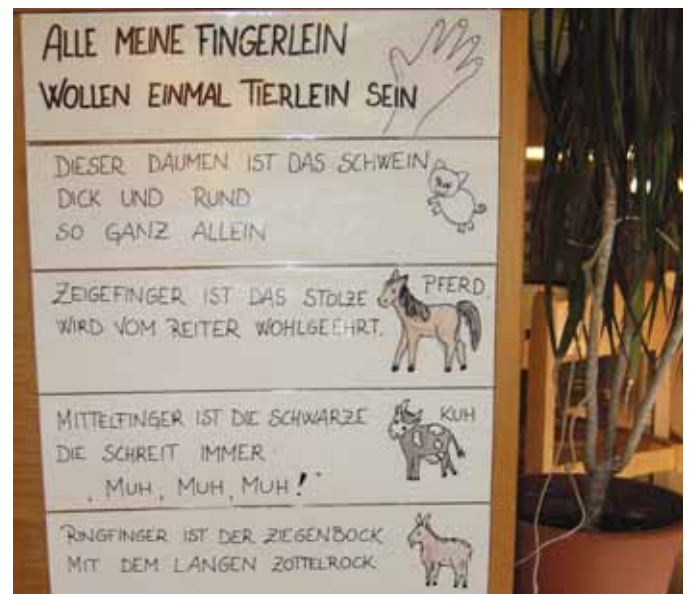 ALLE MEINE FINGERLEIN
WOLLEN EINMAL TIERLEIN SEIN
DIESER DAUMEN IST DAS SCHWEIN
DICK UND RUND
SO GANZ ALLEIN
ZEIGEFINGER IST DAS STOLZE PFERD.
WIRD VOM REITER WOHLGEEHRT.
MITTELFINGER IST DIE SCHWARZE KUH
DIE SCHREIT IMMER
, MUH, MUH, MUH!"
RINGFINGER IST DER ZIEGENBOCK
MIT DEM LANGEN ZOTTELROCK